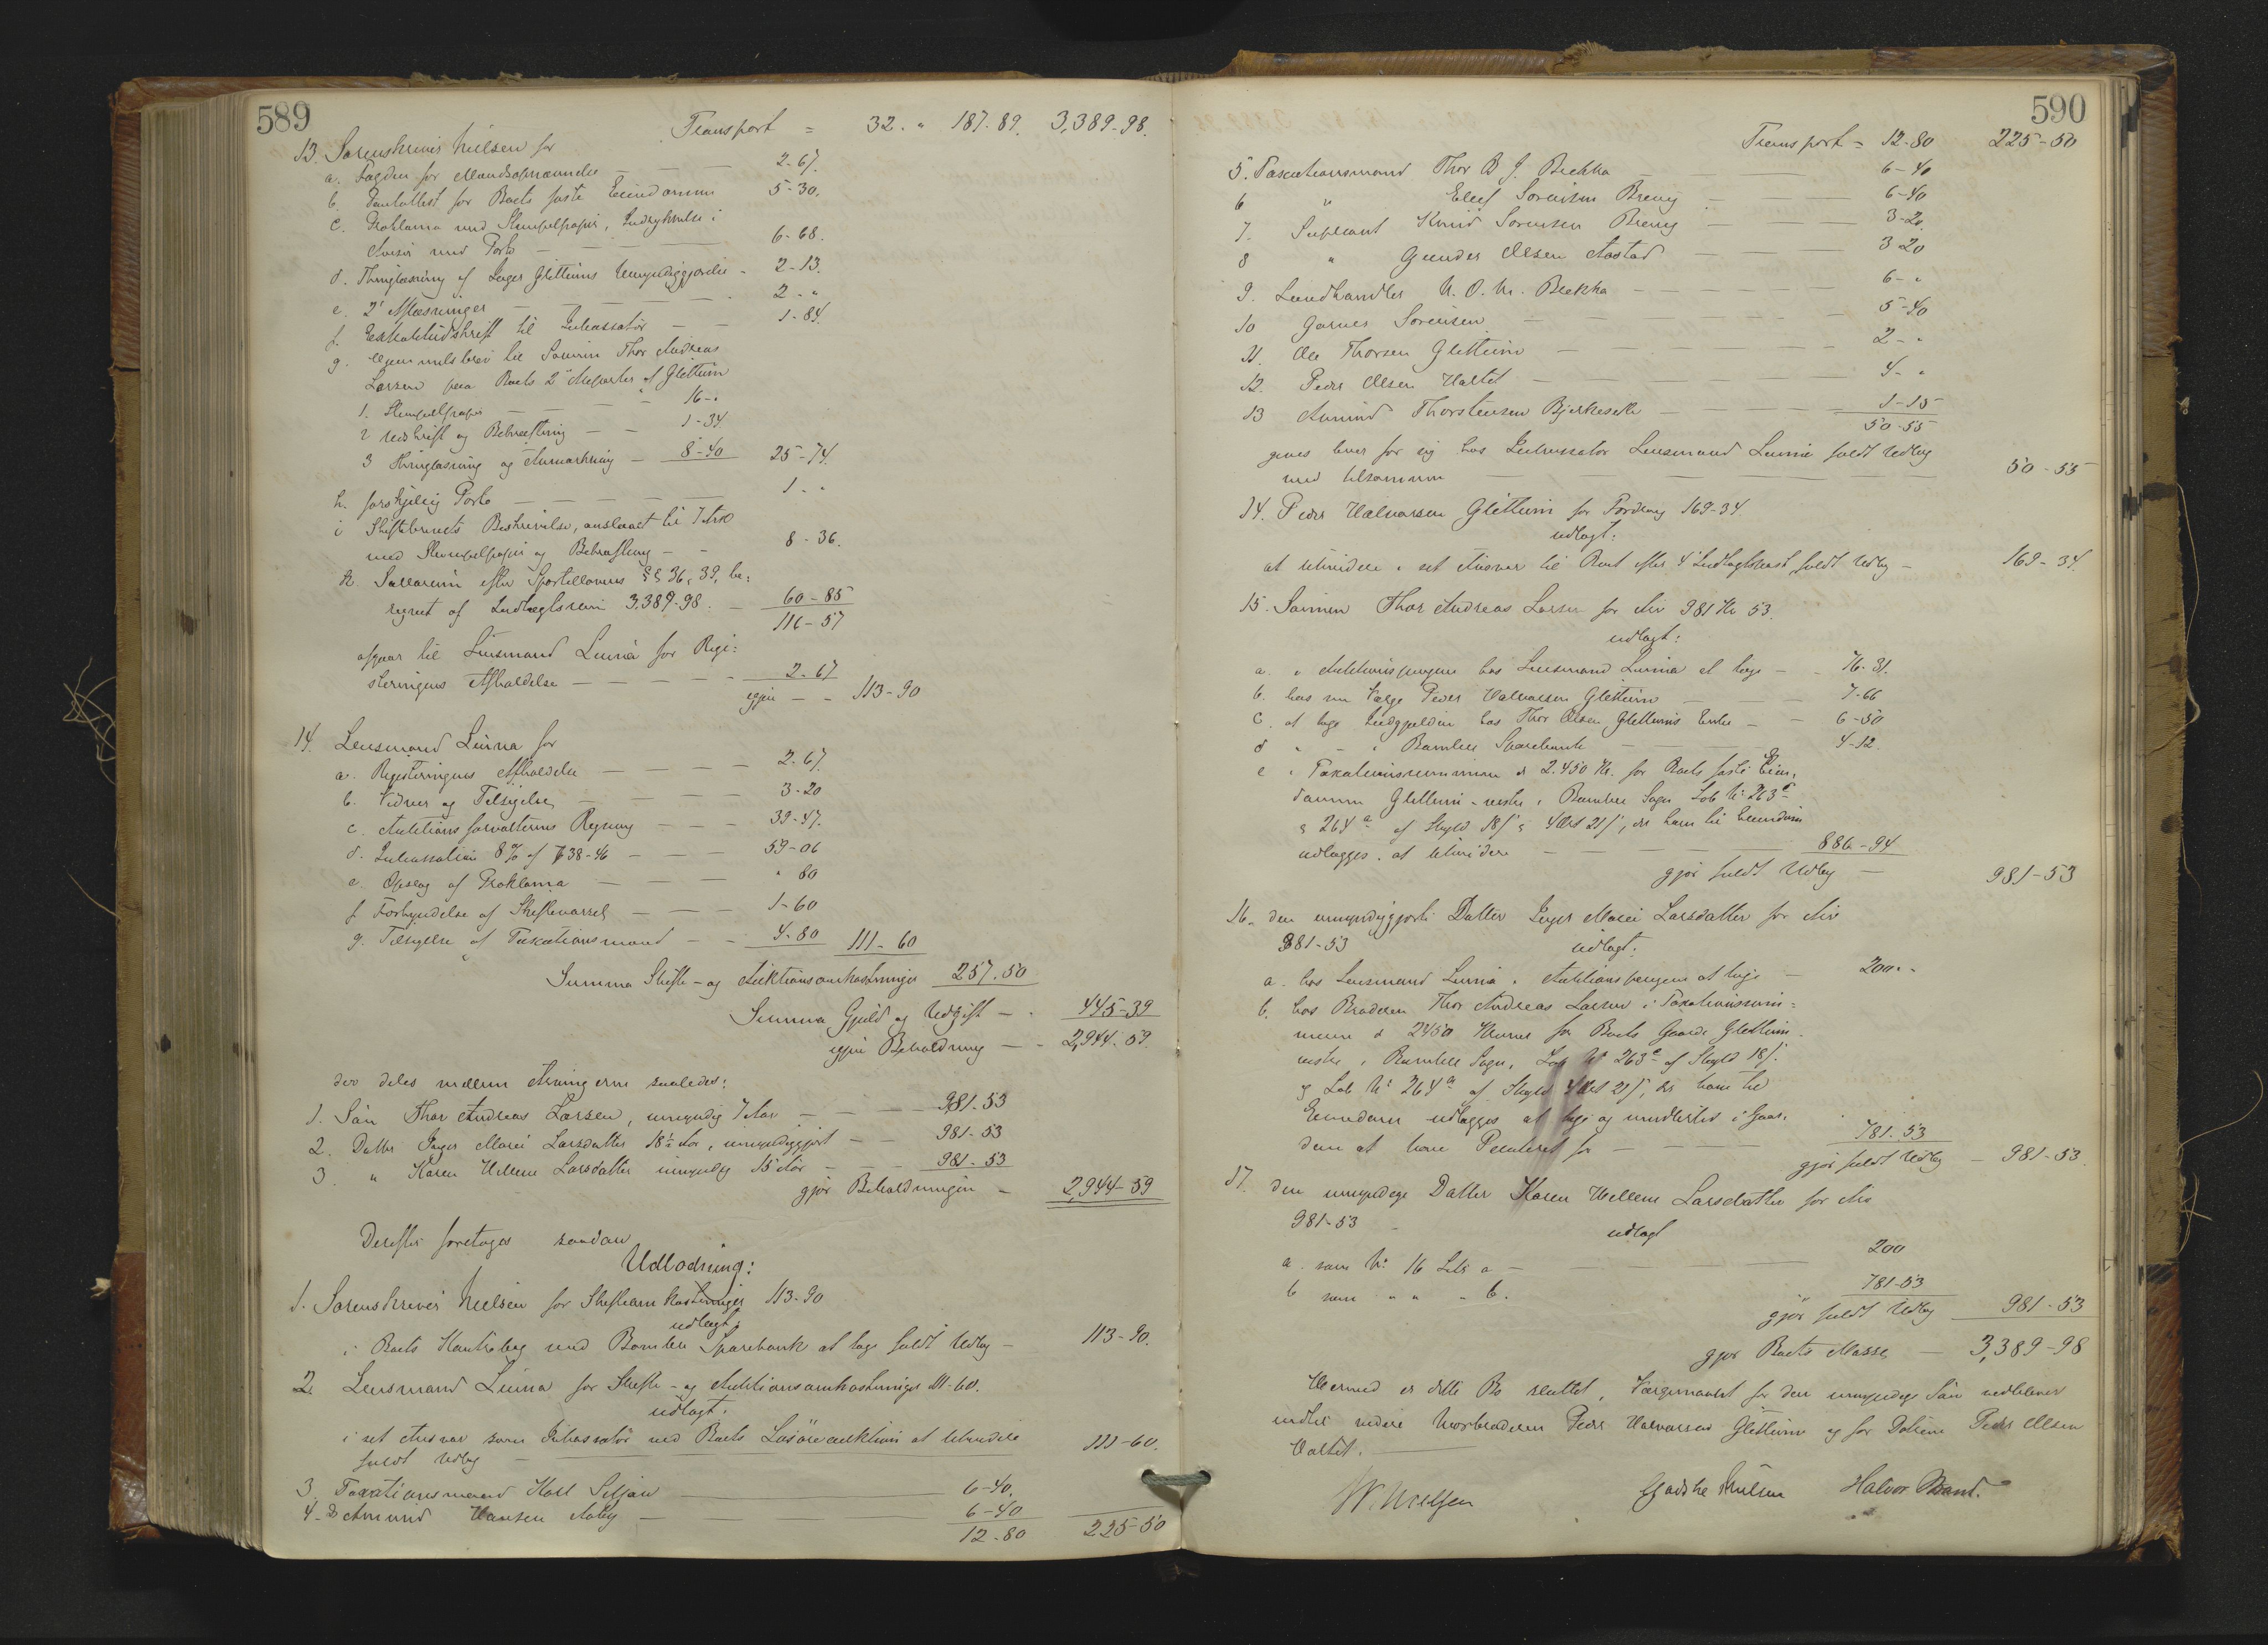 589
Transport = 32. " 187.89. 3,389-98.
13. Sorenskriver Nielsen for
a. Fogden for Mandsopnævnelse — 2-67.
b. Panteattest for Boets faste Eiendomme 5-30.
c. Proklama med Stempelpapir, Indrykkelse i
Aviser med Porto — 6-68.
d. Thinglæsning af Inger Glittums Umyndiggjørelse - 2-13.
e. 2de Aflæsninger — 2-"
f. Extraktudskrift til Inkassator — 1-84.
g. Hjemmelsbrev til Sønnen Thor Andreas
Larsen paa Boets 2de Parter af Glittum
1. Stempelpapir — 16-"
2 Udskrift og Bekræftning — 1-34
3 Thinglæsning og Anmærkning — 8-40 25-74.
h. forskjellig Porto — 1-"
i Skiftebrevets Beskrivelse, anslaaet til 7 Ark
med Stempelpapir og Bekræftning — 8-36.
k. Sallarium efter Sportellovens §§ 36, 39, be:
regnet af Indtægtssum 3,389-98. — 60-85
116-57
afgaar til Lensmand Linna for Regi:
streringens Afholdelse — 2-67
igjen — 113-90
14. Lensmand Linna for
a. Registreringens Afholdelse — 2-67.
b. Vidner og Tilsigelse — 3-20
c. Auktionsforvalterens Regning — 39-47.
d. Inkassation 8% af 738-46 — 59-06
e. Opslag af Proklama — " 80
f. Forkyndelse af Skiftevarsel — 1-60
g. Tilsigelse af Taxationsmænd — 4-80 111-60
Summa Skifte- og Auktionsomkostninger 257.50
Summa Gjæld og Udgift — 445-39
igjen Beholdning — 2,944-59.
der deles mellem Arvingerne saaledes:
1. Søn Thor Andreas Larsen, umyndig 7 Aar — 981-53
2. Datter Inger Marie Larsdatter 18½ Aar, umyndiggjort — 981-53
3. " Karen Hellene Larsdatter umyndig 15 Aar — 981-53
gjør Beholdningen — 2,944-59
Derefter foretages saadan
Udlodning:
1. Sorenskriver Nielsen for Skifteomkostninger 113-90
udlagt:
i Boets Kontrabog med Bamble Sparebank at tage fuldt Udlæg — 113-90.
2. Lensmand Linna for Skifte- og Auktionsomkostninger 111-60.
udlagt:
i set Ansvar som Inkassator ved Boets Løsøreauktion at likvidere
fuldt Udlæg — 111-60.
3. Taxationsmand Karl Siljan — 6-40.
4. Do Amund Hansen Aaby — 6-40
12-80 225-50
590
Transport = 12-80 225-50
5. Taxationsmand Thor B. J. Brekka — 6-40
6 " Elef Sørensen Brevig — 6-40
7. Supleant Knud Sørensen Brevig — 3-20.
8 " Gunder Olsen Aastad — 3 20
9. Landhandler N. O. M. Brekka — 6-"
10 Garver Sørensen — 5-40
11. Ole Thorsen Glittum — 2-"
12. Peder Olsen Valtet — 4-"
13 Amund Thorstensen Bjerkeseth — 1-15
50-55
gives hver for sig hos Inkassator Lensmand Linna fuldt Udlæg
med tilsammen — 50-55
14. Peder Halvorsen Glittum for Fordring 169-34
udlagt:
at likvidere i set Ansvar til Boet efter 4de Indtægtspost fuldt Udlæg — 169-34.
15. Sønnen Thor Andreas Larsen for Arv 981 Kr 53.
udlagt:
a. i Auktionspengene hos Lensmand Linna at tage — 76-31.
b. hos sin Værge Peder Halvorsen Glittum — 7-66
c. at tage Indgjælden hos Thor Olsen Glittums Enke — 6-50
d " - i Bamble Sparebank — 4-12.
e i Taxationssummen de 2.450 Kr. for Boets faste Eien,
domme Glittum-vestre i Bamble Sogn Løb No 263c
& 264a af Skyld 18 s & 4 Ort 21 s, der ham til Eiendom
udlægges at likvidere — 886-94
gjør fuldt Udlæg — 981-53
16. den umyndiggjorte Datter Inger Marie Larsdatter for Arv
981-53 udlagt:
a. hos Lensmand Linna i Auktionspengene at tage — 200--
b. hos Broderen Thor Andreas Larsen i Taxationssum=
men de 2450 Kroner for Boets Gaard Glittum-
vestre i Bamble Sogn, Løb No 263c af Skyld 18 s.
& Løb No 264a af Skyld 4 Ort 21 s, der ham til
Eiendom udlægges at tage og imidlertid i Gaar,
dene at have Panteret for — 781-53
gjør fuldt Udlæg — 981-53.
17. den umyndige Datter Karen Hellene Larsdatter for Arv
981-53
udlagt
a. som No 16 Litr a — 200
b som " " " b. 781-53
gjør fuldt Udlæg 981-53
gjør Boets Masse — 3,389-98
Hermed er dette Bo sluttet, Værgemaalet for den umyndige Søn vedbliver
indtil videre Morbroderen Peder Halvorsen Glittum og for Døttrene Peder Olsen
Valtet.
W. Nielsen Halvor Brant.